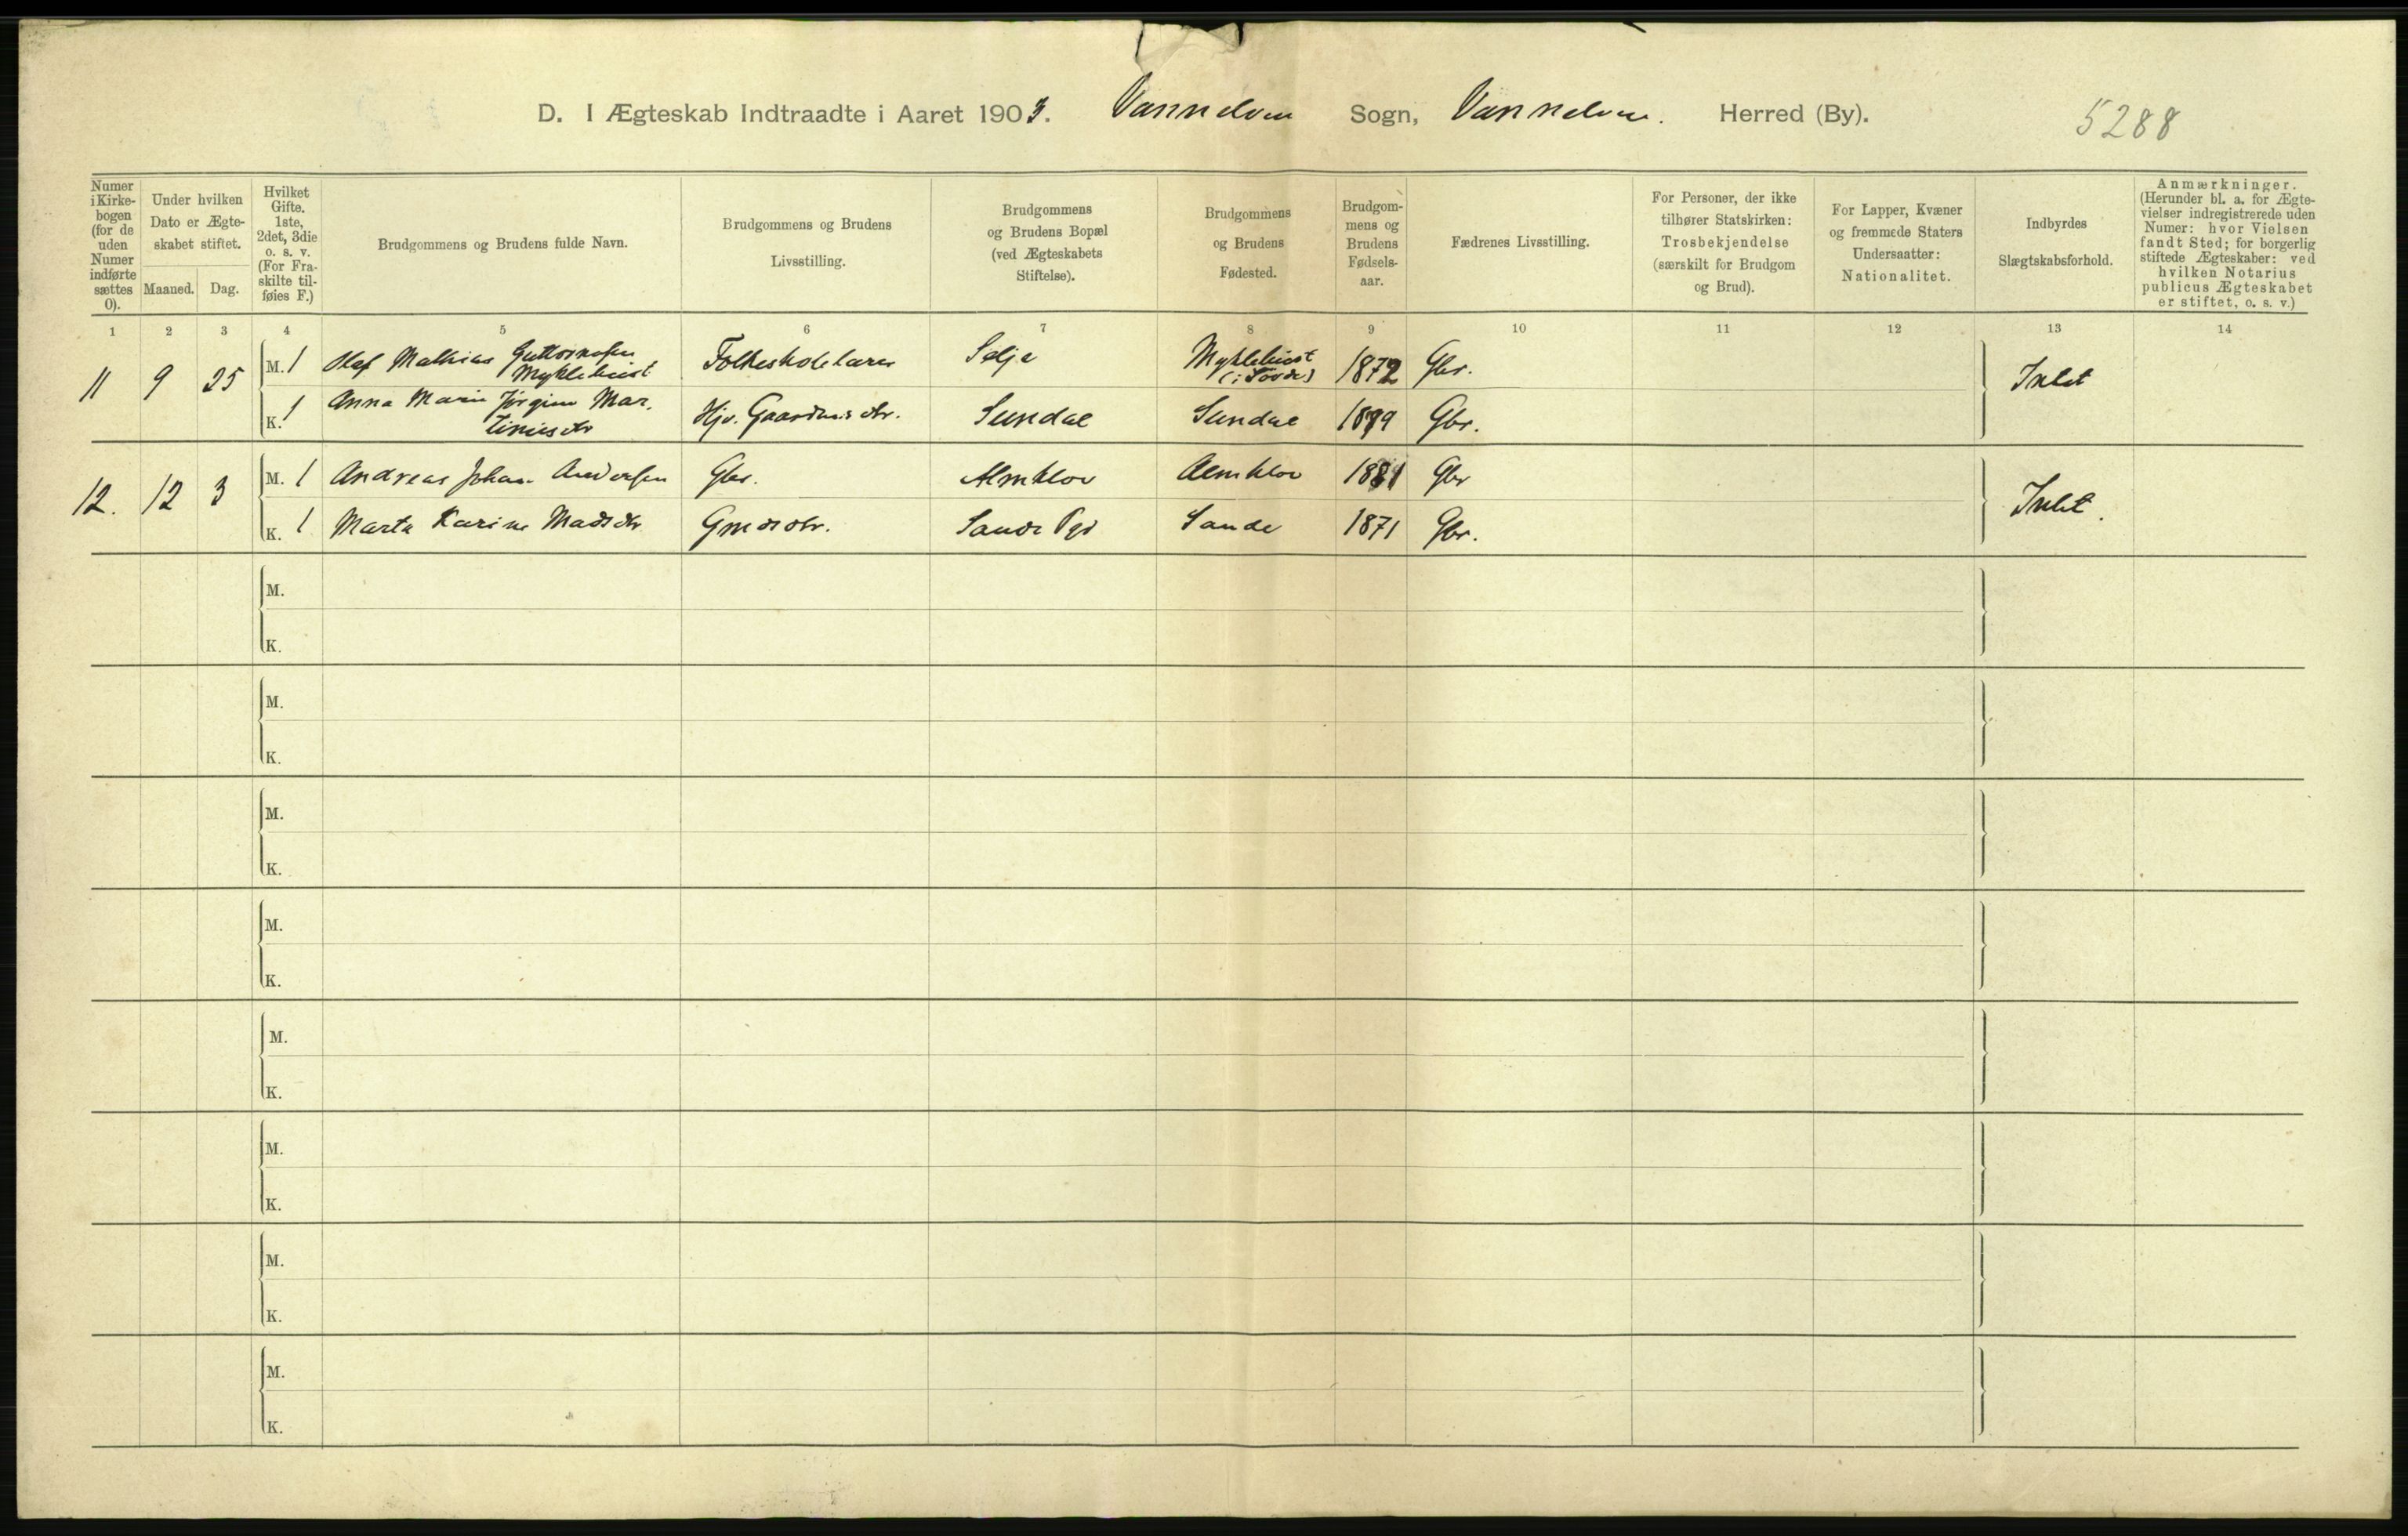 D. I Ægteskab Indtraadte i Aaret 1903. Vannelven Sogn, Vannelven. Herred (By). 5288
Numer i Kirkebogen (for de uden Numer indførte sættes 0).
Under hvilken Dato er Ægteskabet stiftet.
Maaned. Dag.
Hvilket Gifte. 1ste, 2det, 3die o. s. v. (For Fraskilte tilføies F.)
Brudgommens og Brudens fulde Navn.
Brudgommens og Brudens Livsstilling.
Brudgommens og Brudens Bopæl (ved Ægteskabets Stiftelse).
Brudgommens og Brudens Fødested.
Brudgommens og Brudens Fødselsaar.
Fædrenes Livsstilling.
For Personer, der ikke tilhører Statskirken: Trosbekjendelse (særskilt for Brudgom og Brud).
For Lapper, Kvæner og fremmede Staters Undersaatter: Nationalitet.
Indbyrdes Slægtskabsforhold.
Anmærkninger. (Herunder bl. a. for Ægtevielser indregistrerede uden Numer: hvor Vielsen fandt Sted; for borgerlig stiftede Ægteskaber: ved hvilken Notarius publicus Ægteskabet er stiftet, o. s. v.)
1 2 3 4 5 6 7 8 9 10 11 12 13 14
11 9 25 M. 1 Olaf Mathias Guttormsen Myklebust Folkeskolelærer Selje Myklebust (i Søvde) 1872 Gbr. Intet
K. 1 Anna Marie Jørgine Martinusdtr Hjv. Gaardmsdtr. Sundal Sundal 1879 Gbr.
12. 12 3 M. 1 Andreas Johan Andersen Gbr. Almklov Almklov 1881 Gbr Intet.
K. 1 Marte Karine Madsdtr Gmdsdtr. Sande Pgd Sande 1871 Gbr.
M.
K.
M.
K.
M.
K.
M.
K.
M.
K.
M.
K.
M.
K.
M.
K.